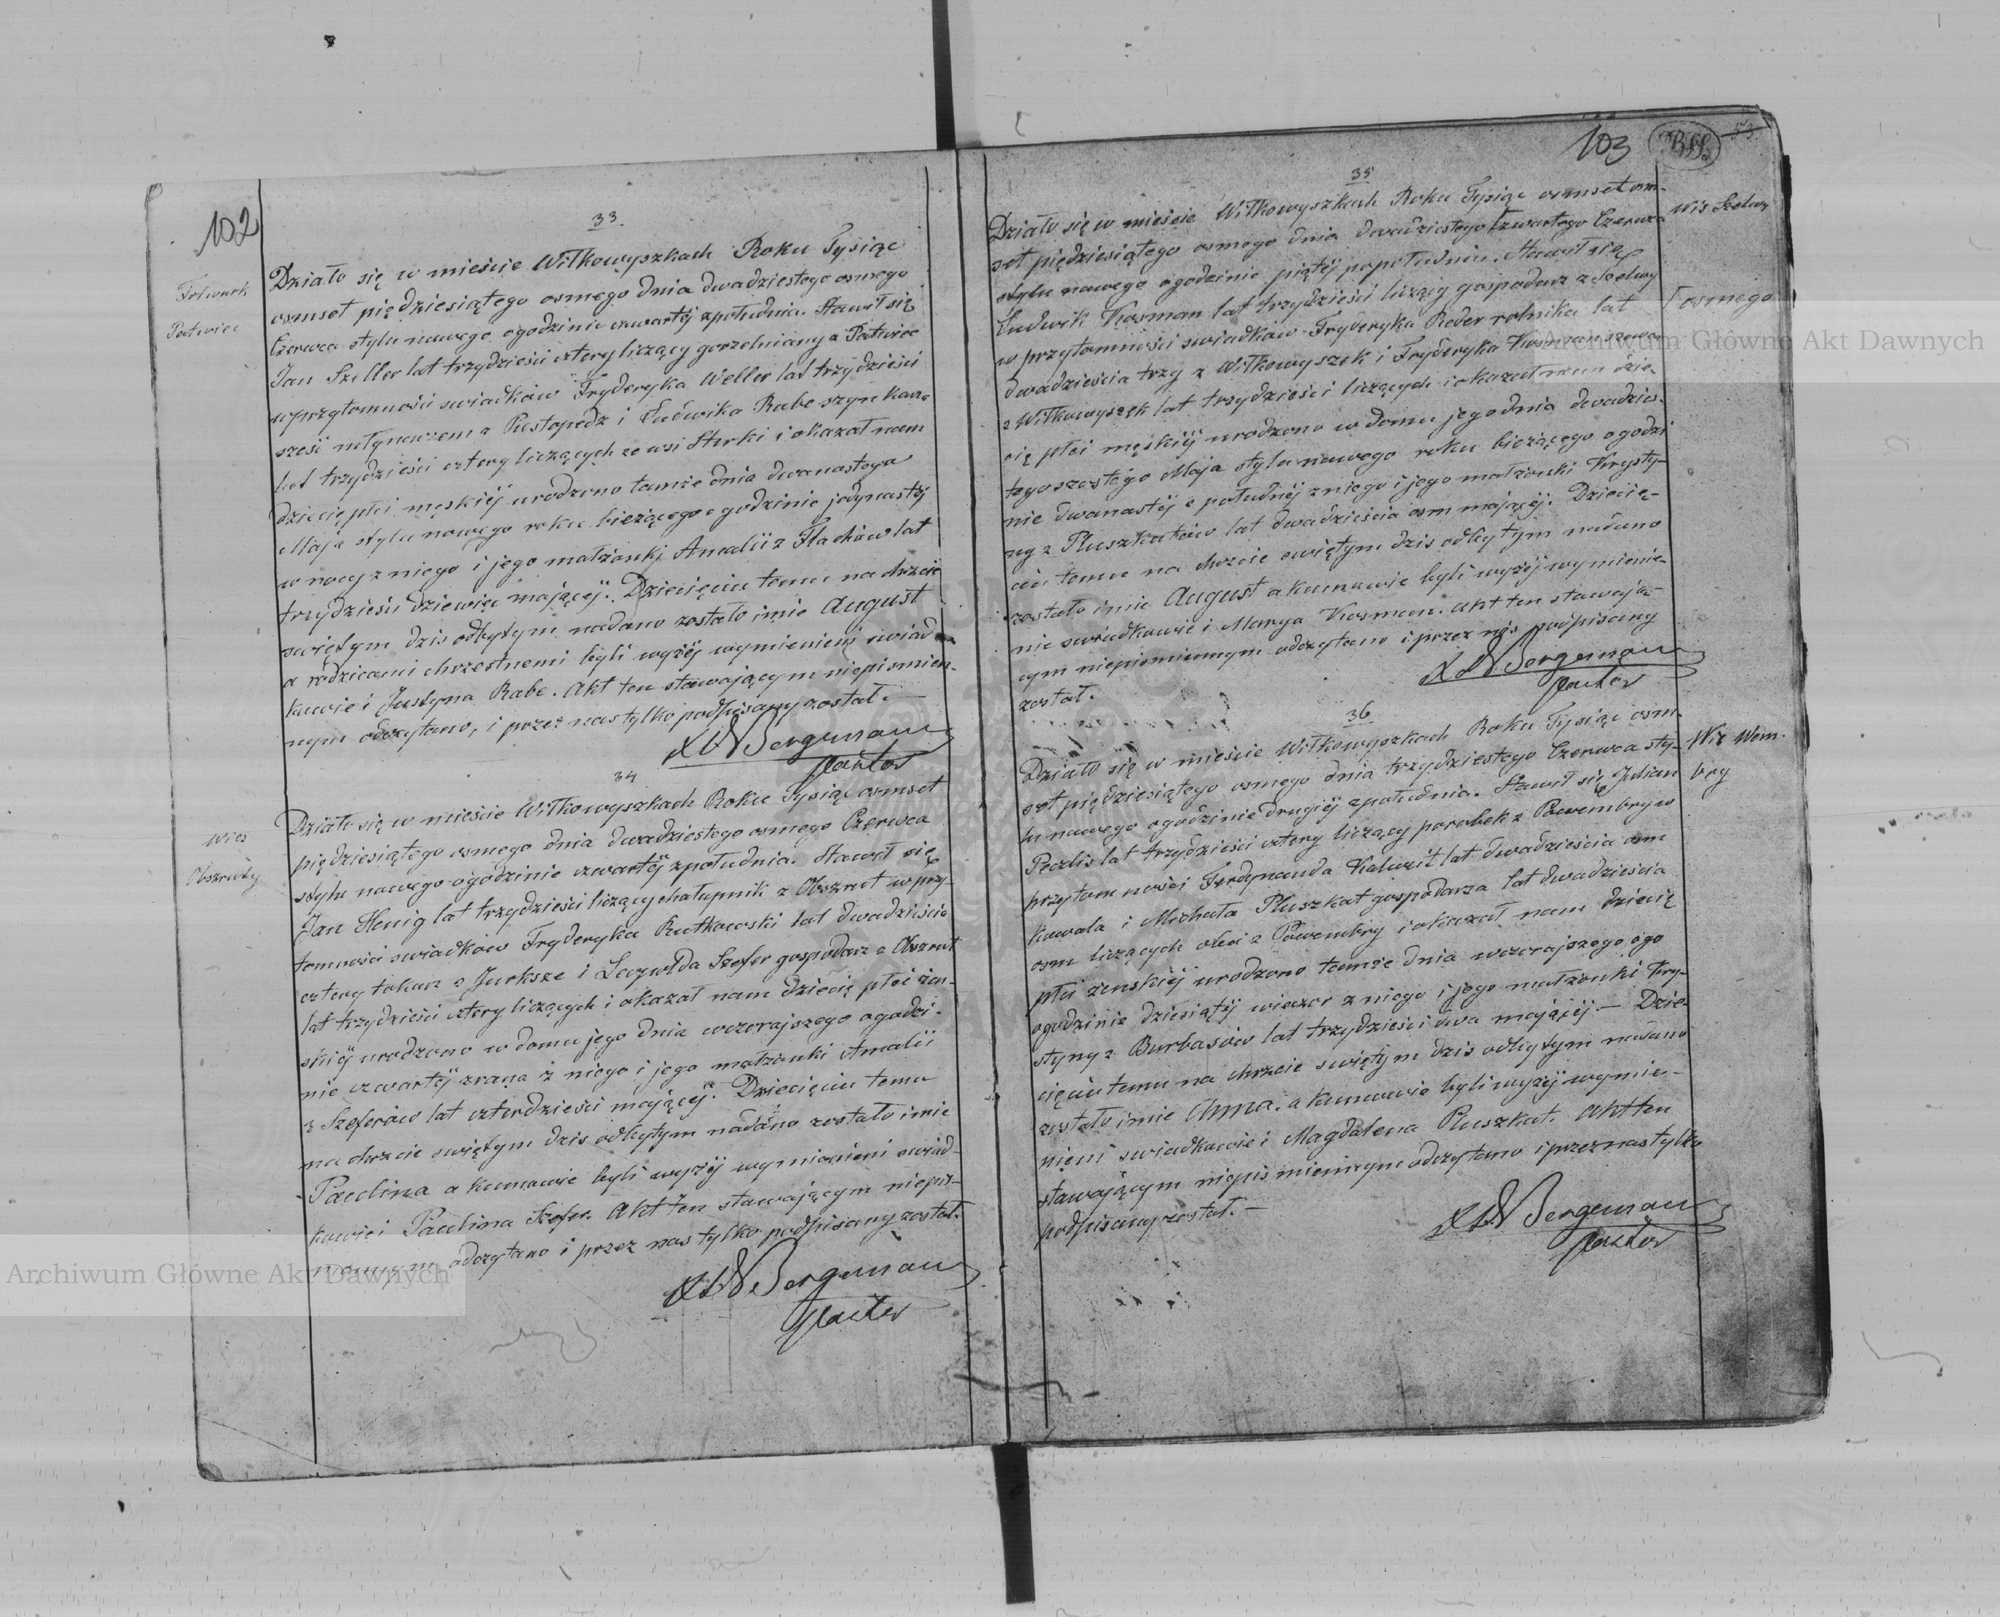 102
33.
Folwark
Patwiec
Działo się w mieście Wiłkowyszkach Roku Tysiąc
osmset pięдziesiątego osmego dnia dwadziestego osmego
Czerwca stylu nowego o godzinie czwartéj z południa. Stawił się
Jan Szeller lat trzydzieści cztery liczący gorzelniany z Patwiec
w przytomności swiadków Fryderyka Weller lat trzydzieści
sześć młynarzem z Pustopedz i Ludwika Rabe szynkarz
lat trzydzieści cztery liczących ze wsi Sterki i okazał nam
dziecię płci męskiéj urodzone tamże dnia dwunastego
Maja stylu nowego roku bieżącego o godzinie jedynastéj
w nocy z niego i jego małżonki Amalii z Flachów lat
trzydzieści dziewięć mającéj. Dziecięciu temu na chrzcie
swiętym dzis odbytym nadano zostało imie August
a rodzicami chrzestnemi byli wyżéj wymienieni swiad
kowie i Justyna Rabe. Akt ten stawającym niepismien-
nym odczytano, i przez nas tylko podpisany zostal. —
Bergemann
Pastor
34
Wies
Obszruty
Działo się w mieście Wiłkowyszkach Roku Tysiąc osmset
pięдziesiątego osmego dnia dwadziestego osmego Czerwca
stylu nowego o godzinie czwartéj z południa. Stawił się
Jan Henig lat trzydzieści liczący chałupnik z Obszrut w przy-
tomności swiadków Fryderyka Rutkowski lat dwadzieścia
cztery tokarz z Jurksze i Leopolda Szefer gospodarz z Obszrut
lat trzydzieści cztery liczących i okazał nam dziecię płci żen-
skiéj urodzone w domu jego dnia wczorajszego o godzi-
nie czwartéj zrana z niego i jego małżonki Amalii
z Szeferów lat czterdzieści mającéj. Dziecięciu temu
na chrzcie swiętym dzis odbytym nadáno zostało imie
Paulina a kumowie byli wyżéj wymienieni swiad-
kowie i Paulina Szefer. Akt ten stawającym niepis-
mennym odczytano i przez nas tylko podpisany zostal.
Bergemann
Pastor
103
53
35
Wis Szelwy
Działo się w mieście Wiłkowyszkach Roku Tysiąc osmset osm-
set pięдziesiątego osmego dnia dwadziestego czwartego Czerwca
osmego
stylu nowego o godzinie piątéj popołudniu. Stawił się
Ludwik Kosman lat trzydzieści liczący gospodarz z Szelwy
w przytomności swiadków Fryderyka Reder rolnika lat
dwadzieścia trzy z Wiłkowyszek i Fryderyka Kosman szewca
z Wiłkowyszek lat trzydzieści liczących i okazał nam dzie-
cię płci męskiéj urodzone w domu jego dnia dwadzies-
tego szostégo Maja stylu nowego roku bieżącego o godzi
nie dwanastéj z południéj z niego i jego małżonki Krysty-
ny z Pluszkatów lat dwadzieścia osm mającéj. Dziecię-
ciu temu na chrzcie swiętym dzis odbytym nadano
zostało imie August a kumowie byli wyżéj wymienie-
nie swiadkowie i Marya Kosman. Akt ten stawają-
cym niepismiennym odczytano i przez nas podpisany
zostal.
Bergemann
Pastor
36
Wis Wem-
bry
Działo się w mieście Wiłkowyszkach Roku Tysiąc osm-
set pięдziesiątego osmego dnia trzydziestego Czerwca sty-
lu nowego o godzinie drugiéj z południa. Stawił się Julian
Peczlis lat trzydzieści cztery liczący parobek z Powembry w
przytomności Ferdynanda Kalweit lat dwadzieścia osm
kowala i Michała Pluszkat gospodarza lat dwadzieścia
osm liczących oba z Powembry i okazał nam dziecię
płci zenskiéj urodzone tamże dnia wczorajszego ogo
ogodzinie dziesiątéj wieczor z niego i jego małżonki Kry-
styny z Burbasów lat trzydzieści dwa mającéj. — Dzie-
cięciu temu na chrzcie swiętym dzis odbytym nadano
zostało imie Anna. a kumowie byli wyżéj wymie-
nieni swiadkowie i Magdalena Pluszkat. Akt ten
stawającym niepismiennym odczytano i przez nas tylko
podpisany zostal. —
Bergemann
Pastor
Archiwum Główne Akt Dawnych
Archiwum Główne Akt Dawnych